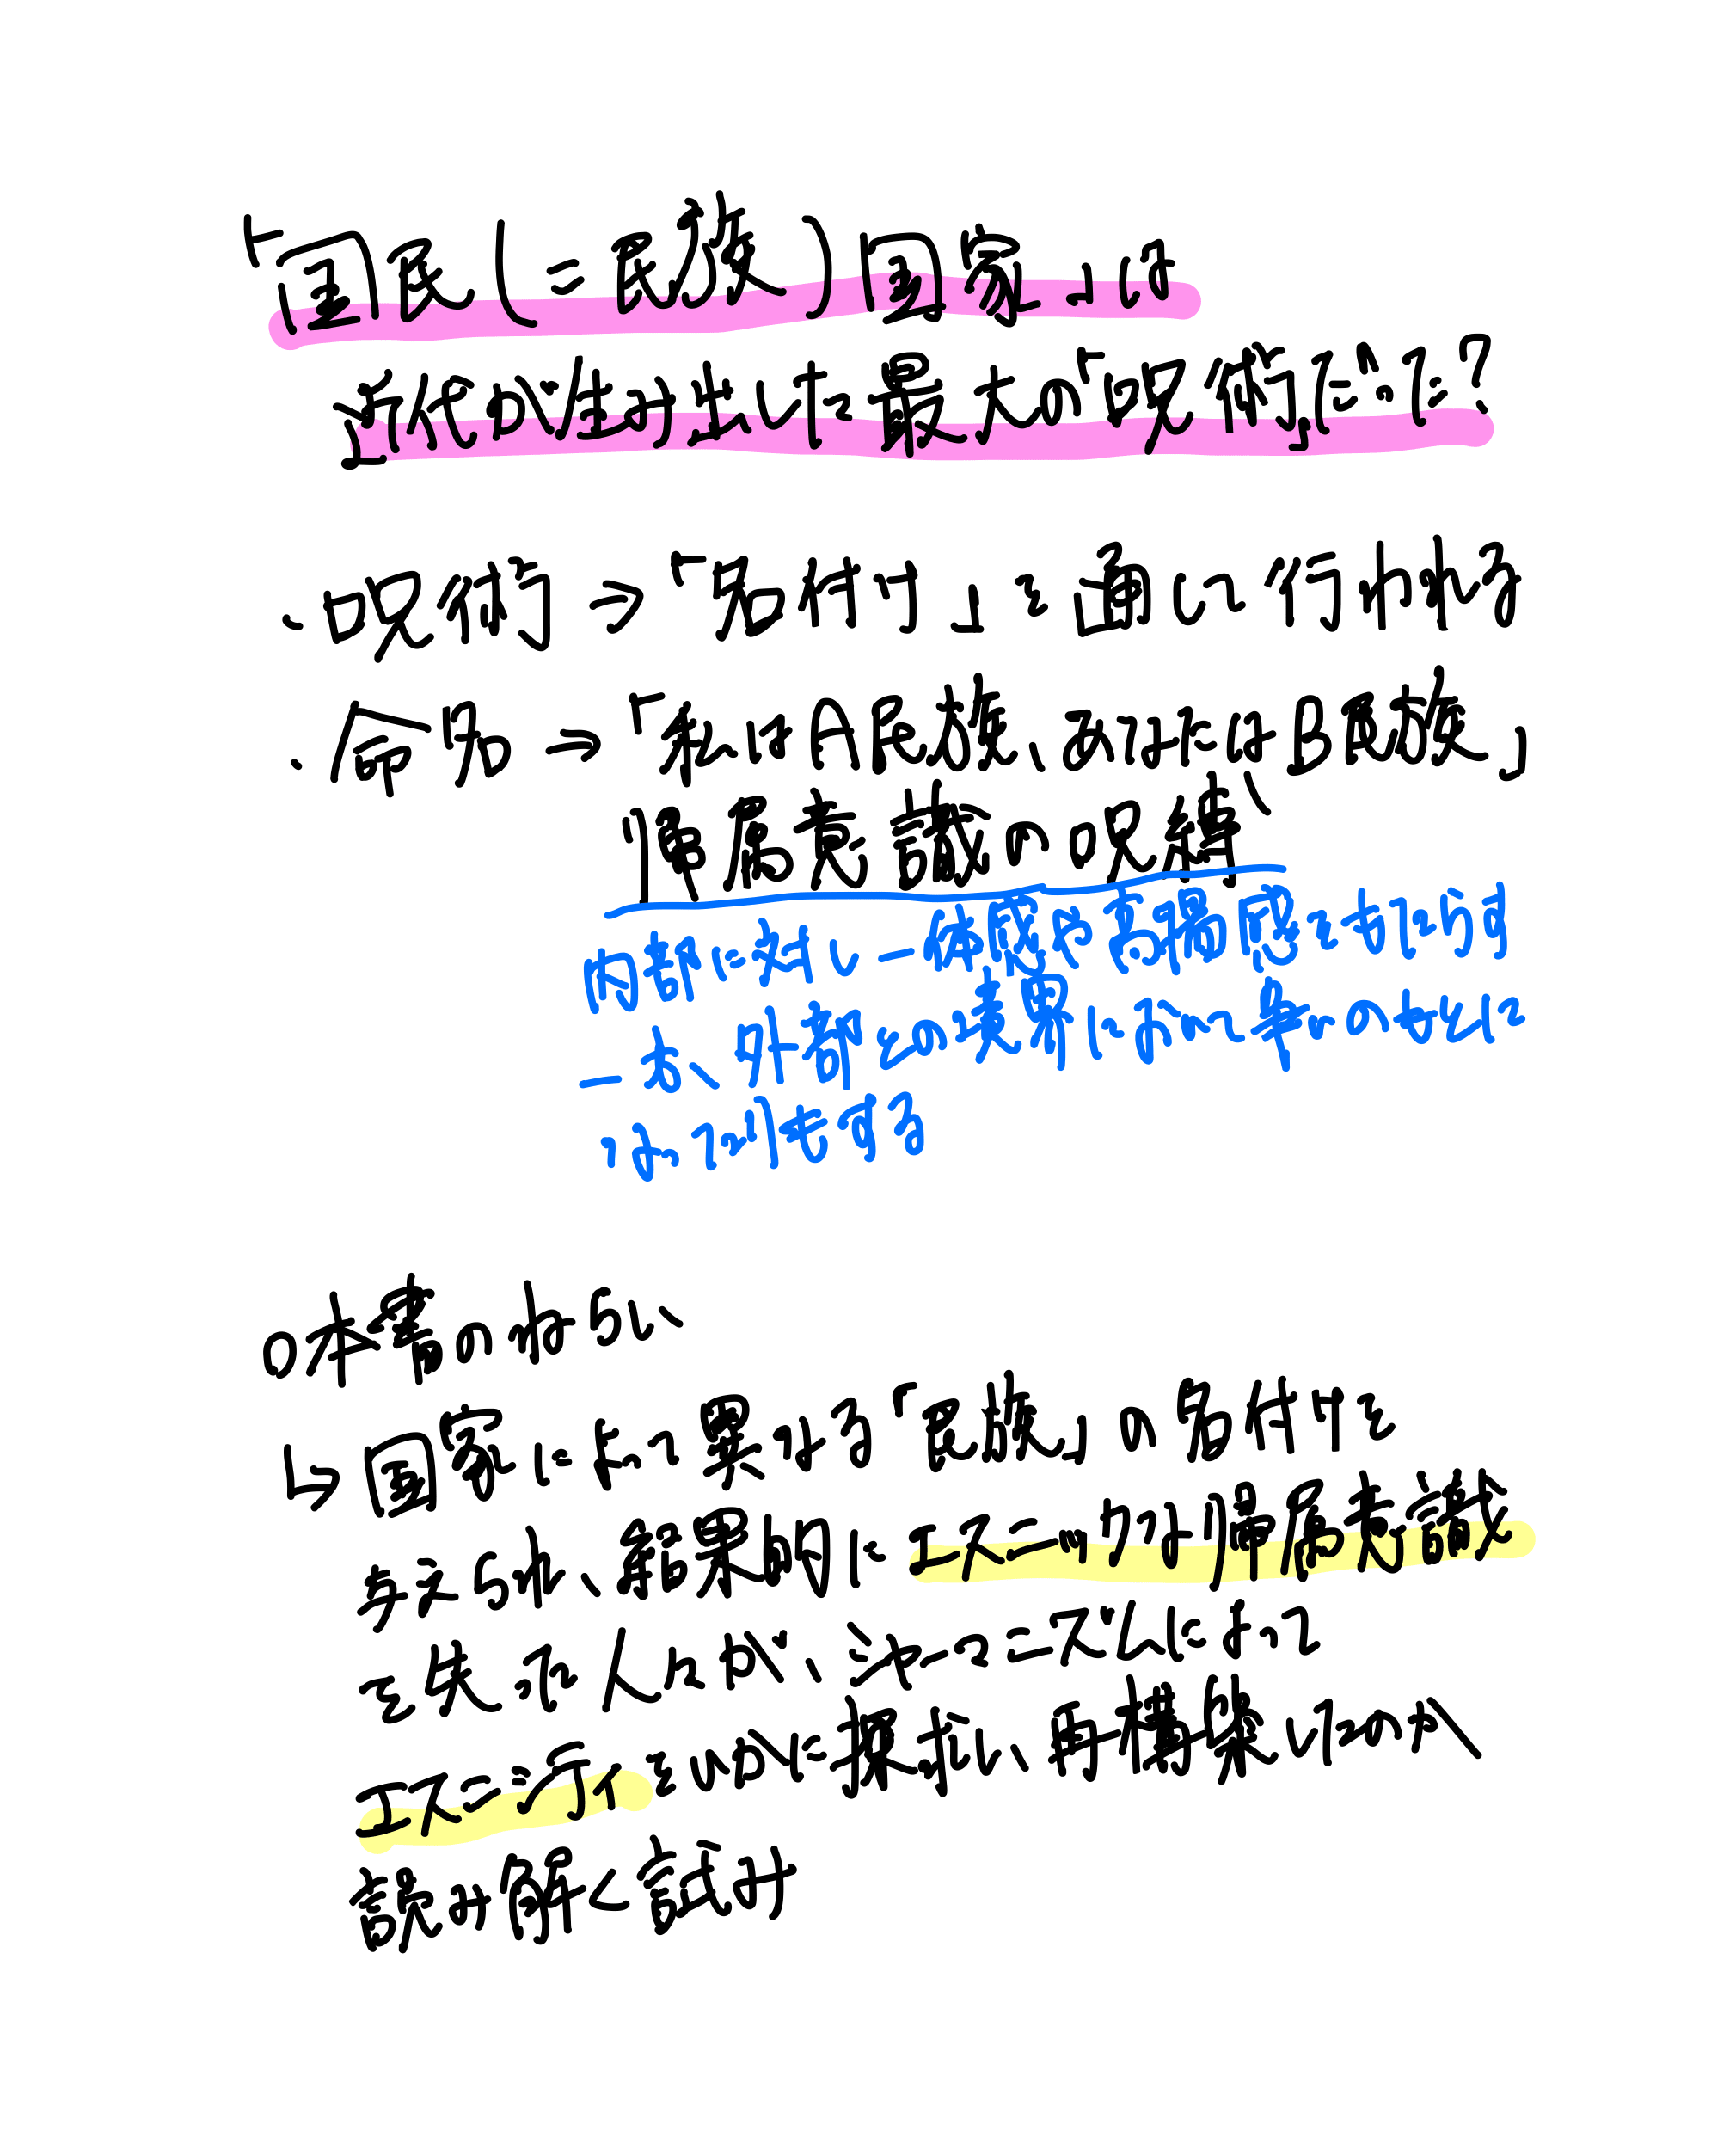 「国民(=民族)国家」は
近代が生み出した最大の"呪術"だった?
・呪術→「名付け」を通じて行われる
・命名→「私はA民族、あなたはB民族」
"帰属意識の呪縛"
内部に対し一体感や高揚感を与える
一方、外部との境界によって争いのもとに
なったりもする
○本書のねらい
↳国家によって異なる「民族」の名付けを
与えられ、結果的に エスニックな帰属意識
を失った人々が、法やコネクションによって
エスニシティをいかに操作し、再構築したのか
読み解く試み